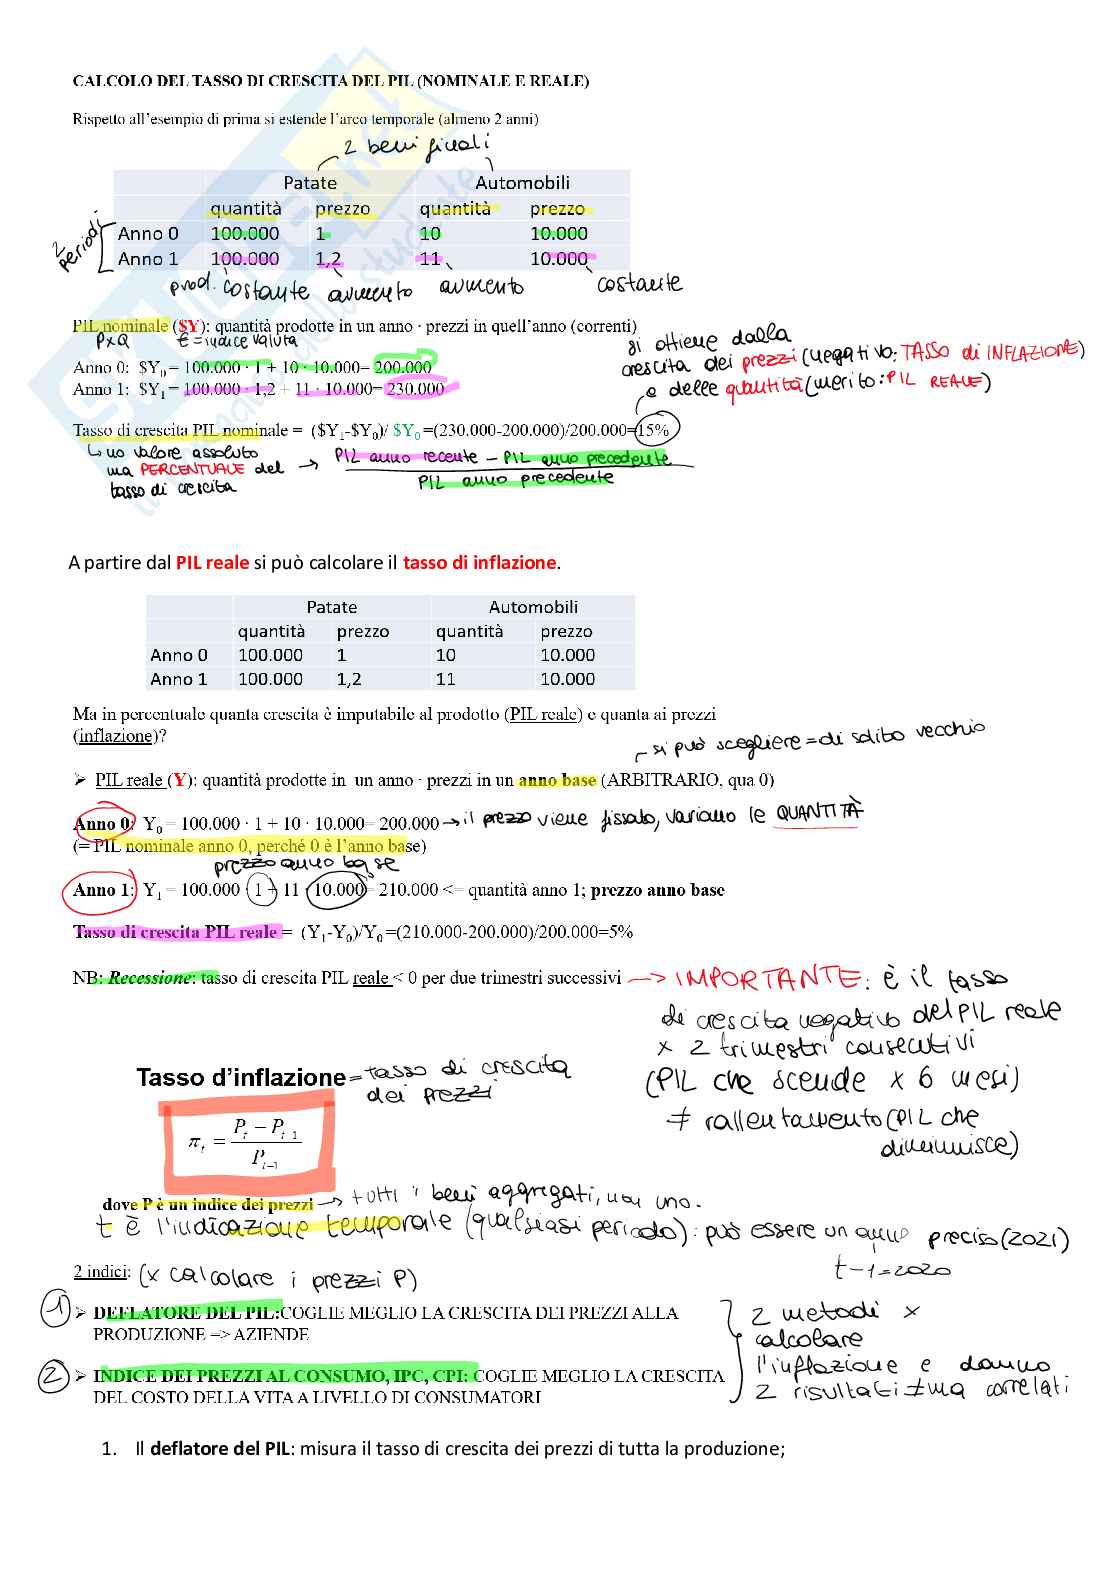 CALCOLO DEL TASSO DI CRESCITA DEL PIL (NOMINALE E REALE)
Rispetto all'esempio di prima si estende l'arco temporale (almeno 2 anni)
2 beni finali
Patate Automobili
quantità prezzo quantità prezzo
2 periodi
Anno 0 100.000 1 10 10.000
Anno 1 100.000 1,2 11 10.000
prod. costante aumento aumento costante
PIL nominale ($Y): quantità prodotte in un anno · prezzi in quell'anno (correnti)
PxQ €=indice valuta
si ottiene dalla
crescita dei prezzi (negativo: TASSO di INFLAZIONE)
e delle quantità (merito: PIL REALE)
Anno 0: $Y0 = 100.000 · 1 + 10 · 10.000= 200.000
Anno 1: $Y1 = 100.000 · 1,2 + 11 · 10.000= 230.000
Tasso di crescita PIL nominale = ($Y1-$Y0)/ $Y0 =(230.000-200.000)/200.000=15%
↳ no valore assoluto
ma PERCENTUALE del
tasso di crescita
→ PIL anno recente – PIL anno precedente
PIL anno precedente
A partire dal PIL reale si può calcolare il tasso di inflazione.
Patate Automobili
quantità prezzo quantità prezzo
Anno 0 100.000 1 10 10.000
Anno 1 100.000 1,2 11 10.000
Ma in percentuale quanta crescita è imputabile al prodotto (PIL reale) e quanta ai prezzi
(inflazione)?
si può scegliere = di solito vecchio
➢ PIL reale (Y): quantità prodotte in un anno · prezzi in un anno base (ARBITRARIO, qua 0)
Anno 0: Y0 = 100.000 · 1 + 10 · 10.000= 200.000 → il prezzo viene fissato, variano le QUANTITÀ
(= PIL nominale anno 0, perché 0 è l'anno base)
prezzo anno base
Anno 1: Y1 = 100.000 · 1 + 11 · 10.000= 210.000 <= quantità anno 1; prezzo anno base
Tasso di crescita PIL reale = (Y1-Y0)/Y0 =(210.000-200.000)/200.000=5%
NB: Recessione: tasso di crescita PIL reale < 0 per due trimestri successivi → IMPORTANTE: è il tasso
di crescita negativo del PIL reale
x 2 trimestri consecutivi
(PIL che scende x 6 mesi)
≠ rallentamento (PIL che
diminuisce)
Tasso d'inflazione = tasso di crescita
dei prezzi
πt = (Pt − Pt−1) / Pt−1
dove P è un indice dei prezzi → tutti i beni aggregati, non uno.
t è l'indicazione temporale (qualsiasi periodo): può essere un anno preciso (2021)
t-1=2020
2 indici: (x calcolare i prezzi P)
1 ➢ DEFLATORE DEL PIL:COGLIE MEGLIO LA CRESCITA DEI PREZZI ALLA
PRODUZIONE => AZIENDE
2 ➢ INDICE DEI PREZZI AL CONSUMO, IPC, CPI: COGLIE MEGLIO LA CRESCITA
DEL COSTO DELLA VITA A LIVELLO DI CONSUMATORI
2 metodi x
calcolare
l'inflazione e danno
2 risultati ≠ ma correlati
1. Il deflatore del PIL: misura il tasso di crescita dei prezzi di tutta la produzione;